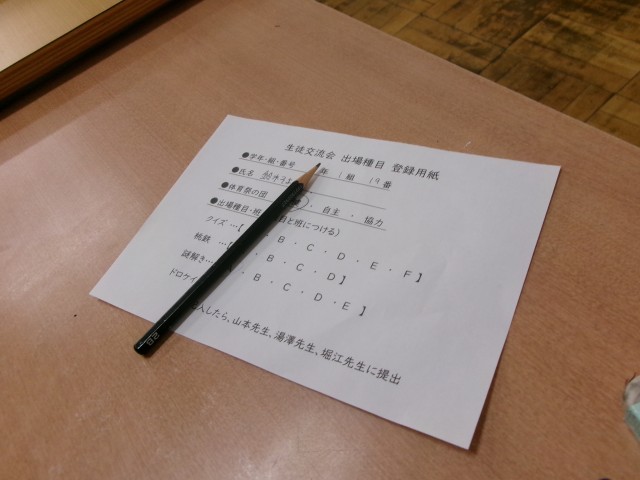 生徒交流会 出場種目 登録用紙
●学年・組・番号 年 1 組 19 番
●氏名
●体育祭の団 ・ 自主 ・ 協力
●出場種目・班 と班につける)
クイズ …【 ・ B ・ C ・ D ・ E ・ F 】
桃鉄 …【 B ・ C ・ D 】
謎解き… B ・ C ・ D ・ E 】
ドロケイ
入したら、山本先生、湯澤先生、堀江先生に提出
2B